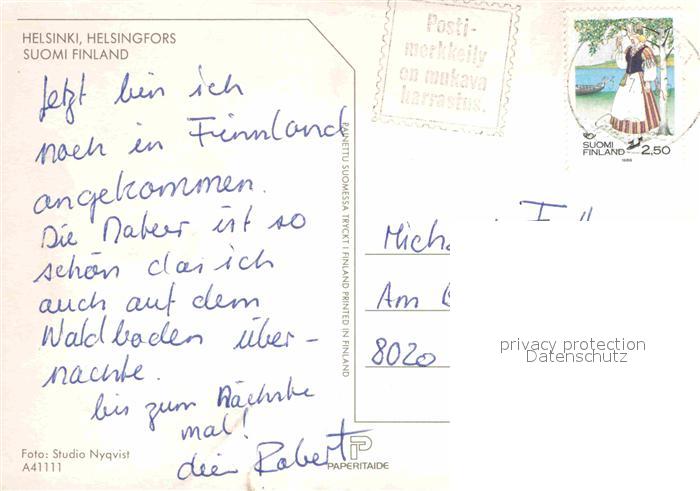 HELSINKI, HELSINGFORS
SUOMI FINLAND
Jetzt bin ich
noch in Finnland
angekommen.
Die Natur ist so
schön das ich
auch auf dem
Waldboden über-
nachte.
bis zum Nächste
mal!
dein Robert
Foto: Studio Nyqvist
A41111
PAINETTU SUOMESSA TRYCKT I FINLAND PRINTED IN FINLAND
PAPERITAIDE
Posti-
merkkeily
on mukava
harrastus.
SUOMI
FINLAND 2,50
1989
Am
8020
privacy protection
Datenschutz